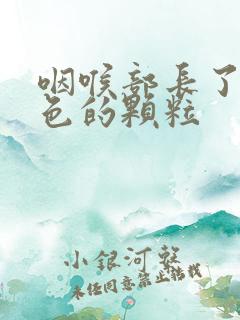 咽喉部長了
色的顆粒
小銀河整
未经同意禁止轉載